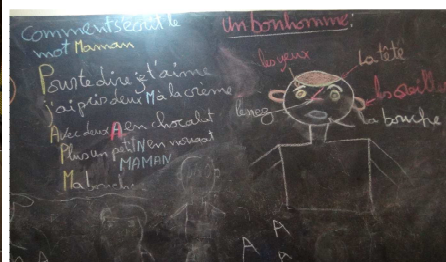 Comment s'écrit le
mot Maman
Pour te dire je t'aime
j'ai pris deux M à la crème
Avec deux A en chocolat
Plus un petit N en nougat
MAMAN
Ma bouche
un bonhomme:
les yeux
La tête
les oreilles
le nez
La bouche
A
A
A
A